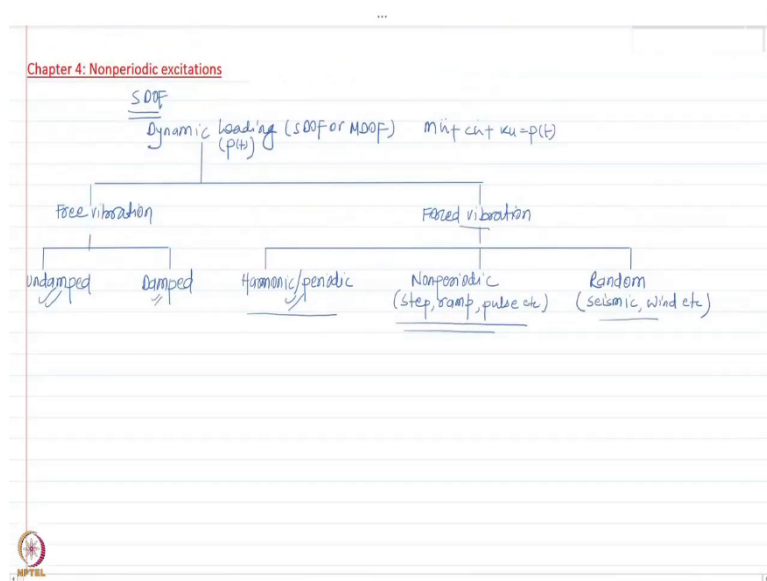 ...
Chapter 4: Nonperiodic excitations
SDOF
Dynamic Loading (SDOF or MDOF) mü + cu̇ + ku = p(t)
(P(t))
Free vibration Forced vibration
Undamped Damped Harmonic/periodic Nonperiodic Random
(step, ramp, pulse etc) (seismic, wind etc)
NPTEL